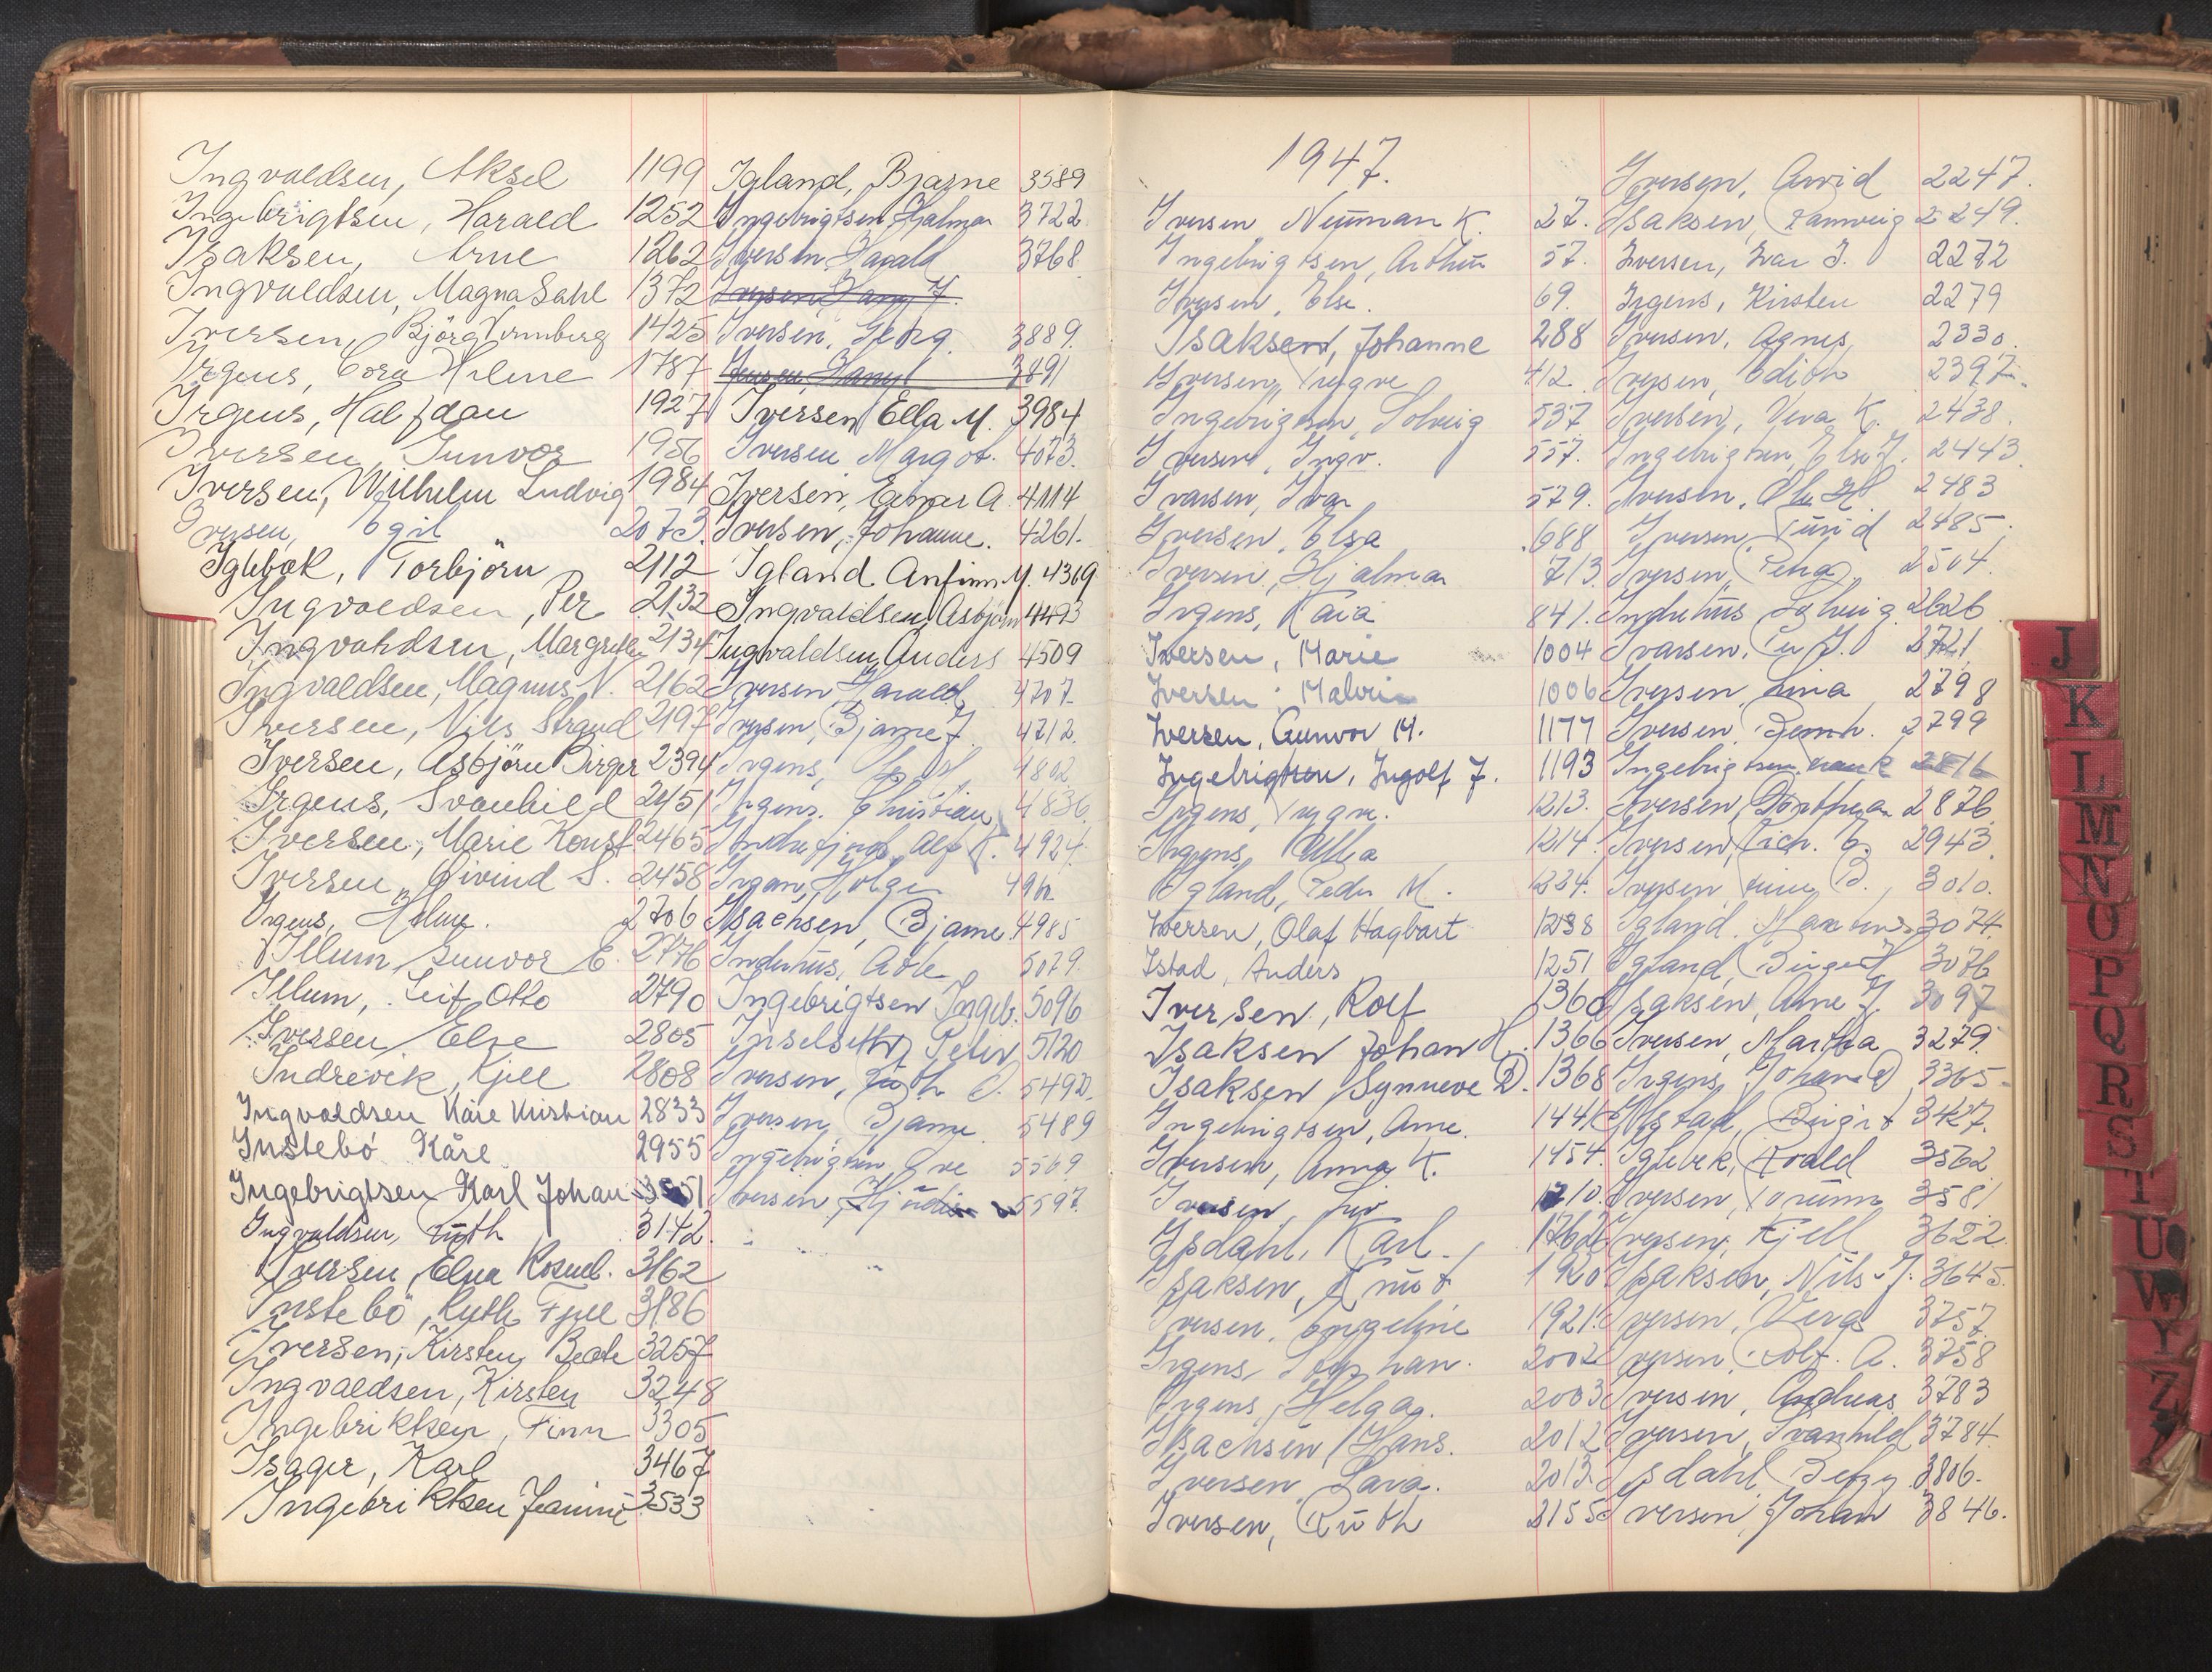 Ingvaldsen, Aksel 1199
Ingebrigtsen, Harald 1252
Isaksen, Arne 1262
Ingvaldsen, Magna Sahl 1372
Iversen, Björg 1425
Irgens, Cora Helene 1787
Irgens, Halfdan 1927
Iversen, Gunvor 1956
Iversen, Wilhelm Ludvig 1984
Iversen, Egil 2073.
Iglebæk, Torbjörn 2112
Ingvaldsen, Per 2132
Ingvaldsen, Margrethe 2134
Ingvaldsen, Magnus N. 2162
Iversen, Nils Strand 2197
Iversen, Asbjörn Birger 2394
Irgens, Svanhild 2451
Iversen, Marie Konst 2465
Iversen, Öivind S. 2458
Irgens, Helmy. 2706
Illum, Gunvor E. 2776
Illum, Leif Otto 2790
Iversen Else 2805
Indrevik, Kjell 2808
Ingvaldsen Kåre Kristian 2833
Instebö Kåre 2955
Ingebrigtsen Karl Johan
Ingvaldsen, Ruth 3142.
Iversen, Elna Rosml. 3162
Instebö, Ruth Fjell 3186
Iversen, Kirsten Beate 3257
Ingvaldsen, Kirsten 3248
Ingebriktsen, Finn 3305
Isager, Karl 3467
Ingebriktsen Jeanine 3533
Igland, Bjarne 3589
Ingebrigtsen Hjalmar 3722
Iversen Harald 3768
Iversen, Harry J.
Iversen, Georg 3889.
Iversen, Harry 3891
Iversen Ella M. 3984
Iversen Margot. 4073.
Iversen, A. 4114
Iversen, Johanne. 4261.
Igland Anfinn M. 4369
Ingvaldsen, Asbjörn 4493
Ingvaldsen, Anders 4509
Iversen, Harald 4707.
Iversen, Bjarne J. 4712.
Irgens, 4802
Irgens. Christian 4836
Alf K. 4924.
Holger 4960.
Isachsen, Bjarne 4985
Indrehus, Atle 5079.
Ingebrigtsen Ingeb. 5096
Inselseth, Peter 5120
Iversen, Ruth O. 5492.
Iversen, Bjarne. 5489
Ingebrigtsen, Ove 5569
Iversen, Hjördis 5597.
1947.
Iversen Neuman K. 27.
Ingebrigtsen, Arthur 57.
Iversen, Else. 69.
Isaksen, Johanne 288
Iversen, Trygve 412
Ingebrigtsen, Solveig 537
Iversen, Ingv. 557.
Ivarsen, Ivar 579.
Iversen, Elsa 688
Iversen, Hjalmar 713.
Irgens, Kaia 841.
Iversen, Marie 1004
Iversen, Malvin 1006
Iversen, Gunvor M. 1177
Ingebrigtsen, Ingolf J. 1193
Irgens, Trygve. 1213.
Irgens, Ulla 1214.
Igland, Peder M. 1224.
Iversen, Olaf Hagbart 1238
Istad, Anders 1251
Iversen, Rolf 1360
Isaksen Johan H. 1366
Isaksen Synneve D. 1368
Ingebrigtsen, Arne. 1441
Iversen, Anna K. 1454.
Iversen, Liv
Isdahl, Karl. 1762
Isaksen, Knut 1920.
Iversen, Engeline 1921.
Irgens, Stephan. 2002
Irgens, Helga. 2003
Isachsen, Hans. 2012
Iversen Lava. 2013.
Iversen, Ruth 2155
Iversen, Arvid 2247.
Isaksen, Ranveig 2249.
Iversen, Ivar J. 2272
Irgens, Kirsten 2279
Iversen, Agnes 2330.
Iversen, Edith 2397.
Iversen, Vera K. 2438.
Ingebrigtsen, Else J. 2443.
Iversen, Ole H. 2483
Iversen, Turid 2485.
Iversen, Petra 2504.
Indrehus Solveig. 2626
Ivarsen, 2721
Iversen, Lina 2798
Iversen, Bernh. 2799
Ingebrigtsen, 2816
Iversen, Dorthea 2876.
Iversen, Rich. E. 2943.
Iversen, B., 3010.
Igland. 3074.
Igland, Birger H. 3076
Isaksen, Arne J. 3097
Iversen, Martha 3279.
Irgens, Johan D. 3365.
Birgit 3427.
Iglebæk, Roald 3562
Iversen, Torunn 3581
Iversen, Kjell 3622.
Isaksen, Nils J. 3645.
Iversen, Vera 3757.
Iversen, Rolf. A. 3758
Iversen, Andreas 3783
Iversen, Svanhild 3784.
Isdahl, Betzy 3806.
Iversen, Johan 3846.
J
K
L
M
N
O
P
Q
R
S
T
U
W
Y
Z